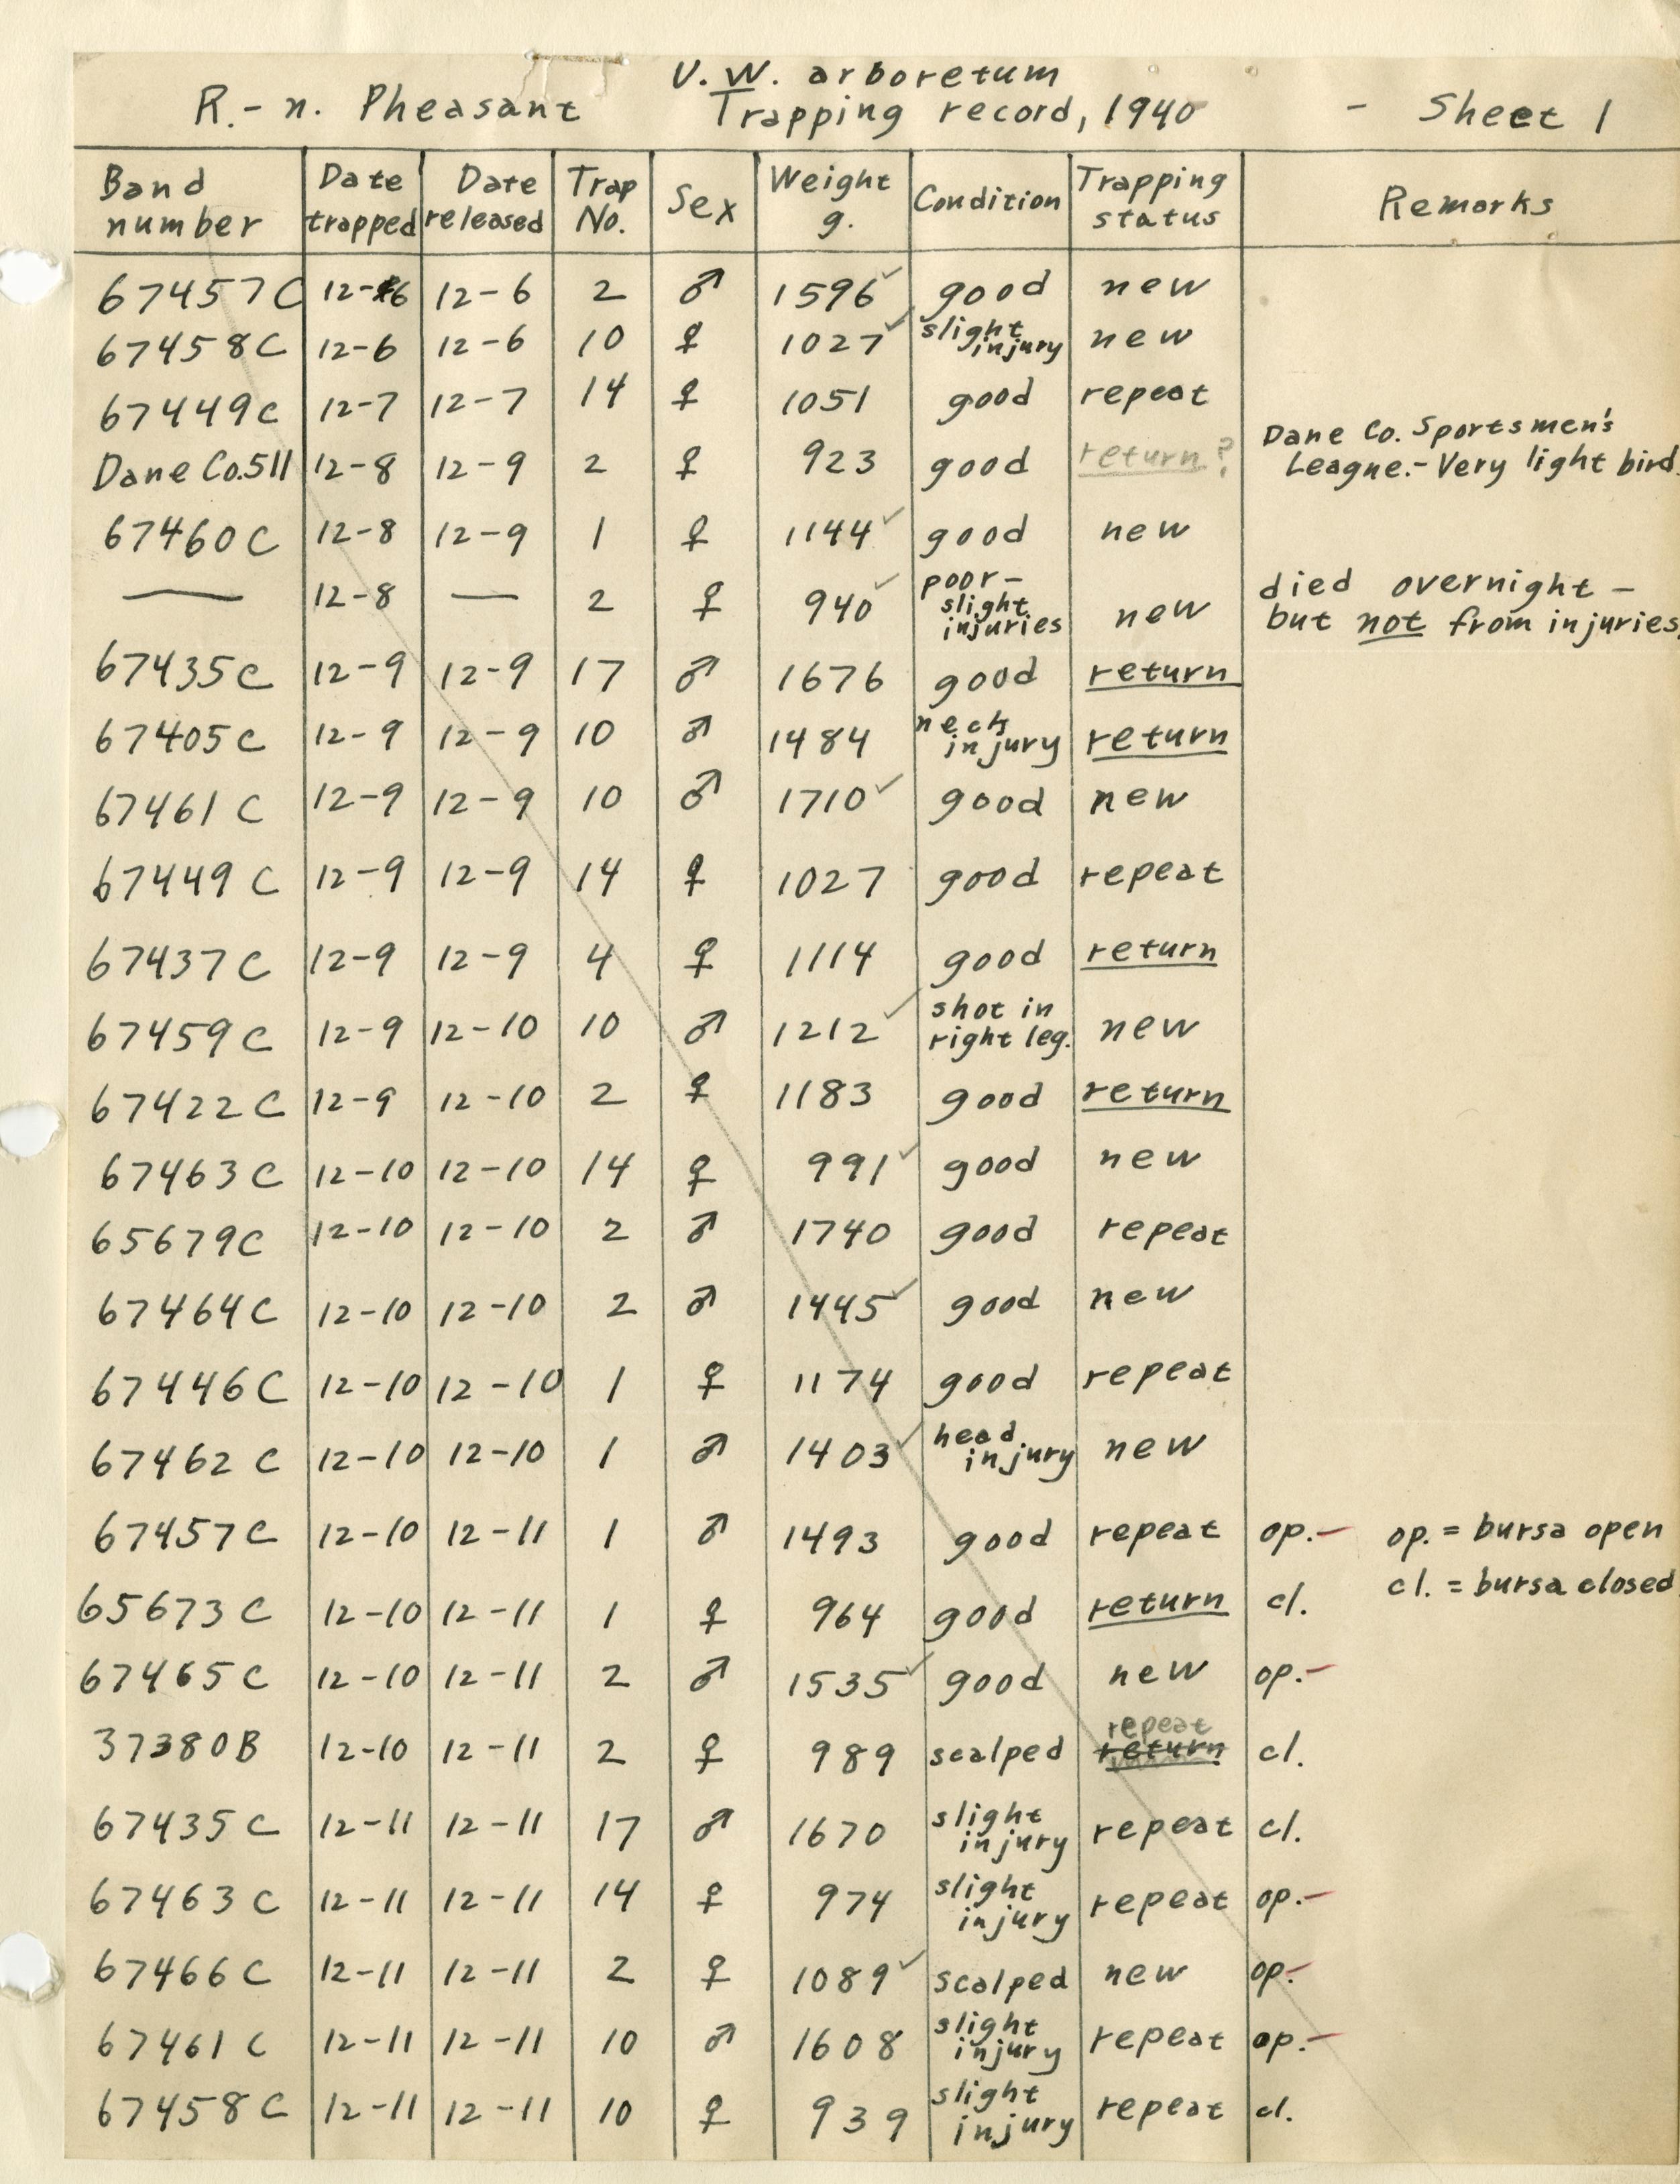 U.W. arboretum
R.-n. Pheasant Trapping record, 1940 - Sheet 1
Band number Date trapped Date released Trap No. Sex Weight g. Condition Trapping status Remarks
67457C 12-6 12-6 2 ♂ 1596 ✓ good new
67458C 12-6 12-6 10 ♀ 1027 ✓ slight injury new
67449C 12-7 12-7 14 ♀ 1051 good repeat
Dane Co. 511 12-8 12-9 2 ♀ 923 good return? Dane Co. Sportsmen's League.- Very light bird.
67460C 12-8 12-9 1 ♀ 1144 ✓ good new
— 12-8 — 2 ♀ 940 ✓ poor - slight injuries new died overnight - but not from injuries.
67435C 12-9 12-9 17 ♂ 1676 good return
67405C 12-9 12-9 10 ♂ 1484 neck injury return
67461C 12-9 12-9 10 ♂ 1710 ✓ good new
67449C 12-9 12-9 14 ♀ 1027 good repeat
67437C 12-9 12-9 4 ♀ 1114 good return
67459C 12-9 12-10 10 ♂ 1212 ✓ shot in right leg. new
67422C 12-9 12-10 2 ♀ 1183 good return
67463C 12-10 12-10 14 ♀ 991 ✓ good new
65679C 12-10 12-10 2 ♂ 1740 good repeat
67464C 12-10 12-10 2 ♂ 1445 ✓ good new
67446C 12-10 12-10 1 ♀ 1174 good repeat
67462C 12-10 12-10 1 ♂ 1403 ✓ head injury new
67457C 12-10 12-11 1 ♂ 1493 good repeat op.- op. = bursa open
cl. = bursa closed
65673C 12-10 12-11 1 ♀ 964 good return cl.
67465C 12-10 12-11 2 ♂ 1535 ✓ good new op.-
37380B 12-10 12-11 2 ♀ 989 scalped repeat return cl.
67435C 12-11 12-11 17 ♂ 1670 slight injury repeat cl.
67463C 12-11 12-11 14 ♀ 974 slight injury repeat op.-
67466C 12-11 12-11 2 ♀ 1089 ✓ scalped new op.-
67461C 12-11 12-11 10 ♂ 1608 slight injury repeat op.-
67458C 12-11 12-11 10 ♀ 939 slight injury repeat cl.